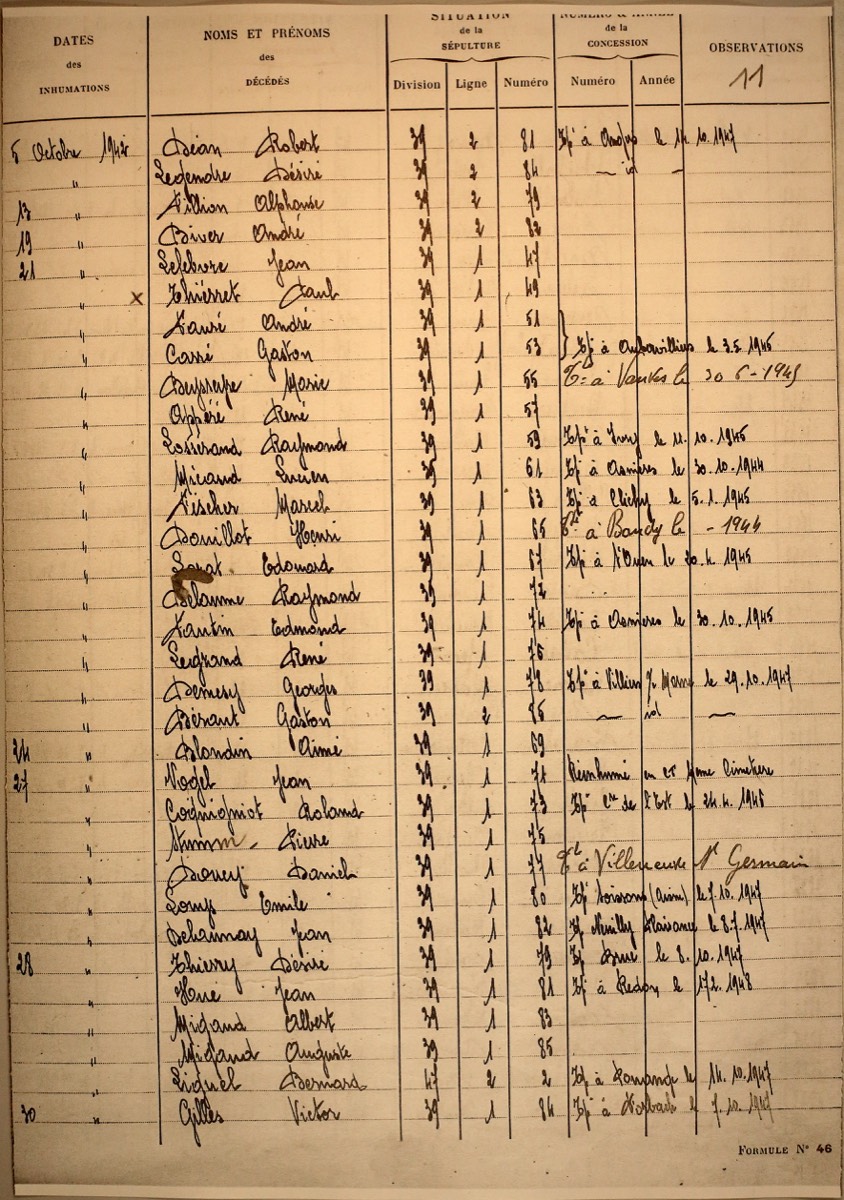 DATES des INHUMATIONS
NOMS ET PRÉNOMS des DÉCÉDÉS
SITUATION de la SÉPULTURE
Division Ligne Numéro
NUMÉRO & ANNÉE de la CONCESSION
Numéro Année
OBSERVATIONS
11
5 Octobre 1942 Déan Robert 39 2 81 Tpé à le 14.10.1947
" Legendre Désiré 39 2 84 — id —
13 " Villion Alphonse 39 2 79
19 " Biver André 39 2 82
21 " Lefebvre Jean 39 1 47
" x Thiérret Paul 39 1 49
" André 39 1 51
" Carré Gaston 39 1 53 } Tpé à Aubervilliers le 3.5.1945
" Marie 39 1 55 à Vanves le 30 6-1945
" Appéré René 39 1 57
" Losserand Raymond 39 1 59 Tpé à Ivry le 11.10.1945
" Micaud Lucien 39 1 61 Tpé à Asnières le 30.10.1944
" Fischer Marcel 39 1 63 Tpé à Clichy le 5.1.1945
" Douillot Henri 39 1 65 à Bondy le - 1944
" Edouard 39 1 67 Tpé à St Ouen le 20.4.1945
" Delaume Raymond 39 1 72
" Tantin Edmond 39 1 74 Tpé à Asnières le 30.10.1945
" Legrand René 39 1 76
" Georges 39 1 78 Tpé à Villiers s/ Marne le 29.10.1947
" Gaston 39 2 85 — id —
24 " Blondin Aimé 39 1 69
27 " Vogel Jean 39 1 71 Réinhumé en ce Même Cimetière
" Roland 39 1 73 Tpé de l'Est le 24.4.1945
" Stumm - Pierre 39 1 75
" Douey Daniel 39 1 77 à Villeneuve St Germain
" Loups Emile 39 1 80 Tpé Soissons (Aisne) le 7.10.1947
" Delaunay Jean 39 1 82 Tpé Neuilly Plaisance le 8.7.1947
28 " Thierry Désiré 39 1 79 Tpé le 8.10.1947
" Hué Jean 39 1 81 Tpé à Redon le 17 2.1948
" Migaud Albert 39 1 83
" Migaud Auguste 39 1 85
" Bernard 47 2 2 Tpé à le 14.10.1947
30 " Gilles Victor 39 1 84 Tpé à le 7.10.1947
FORMULE N° 46